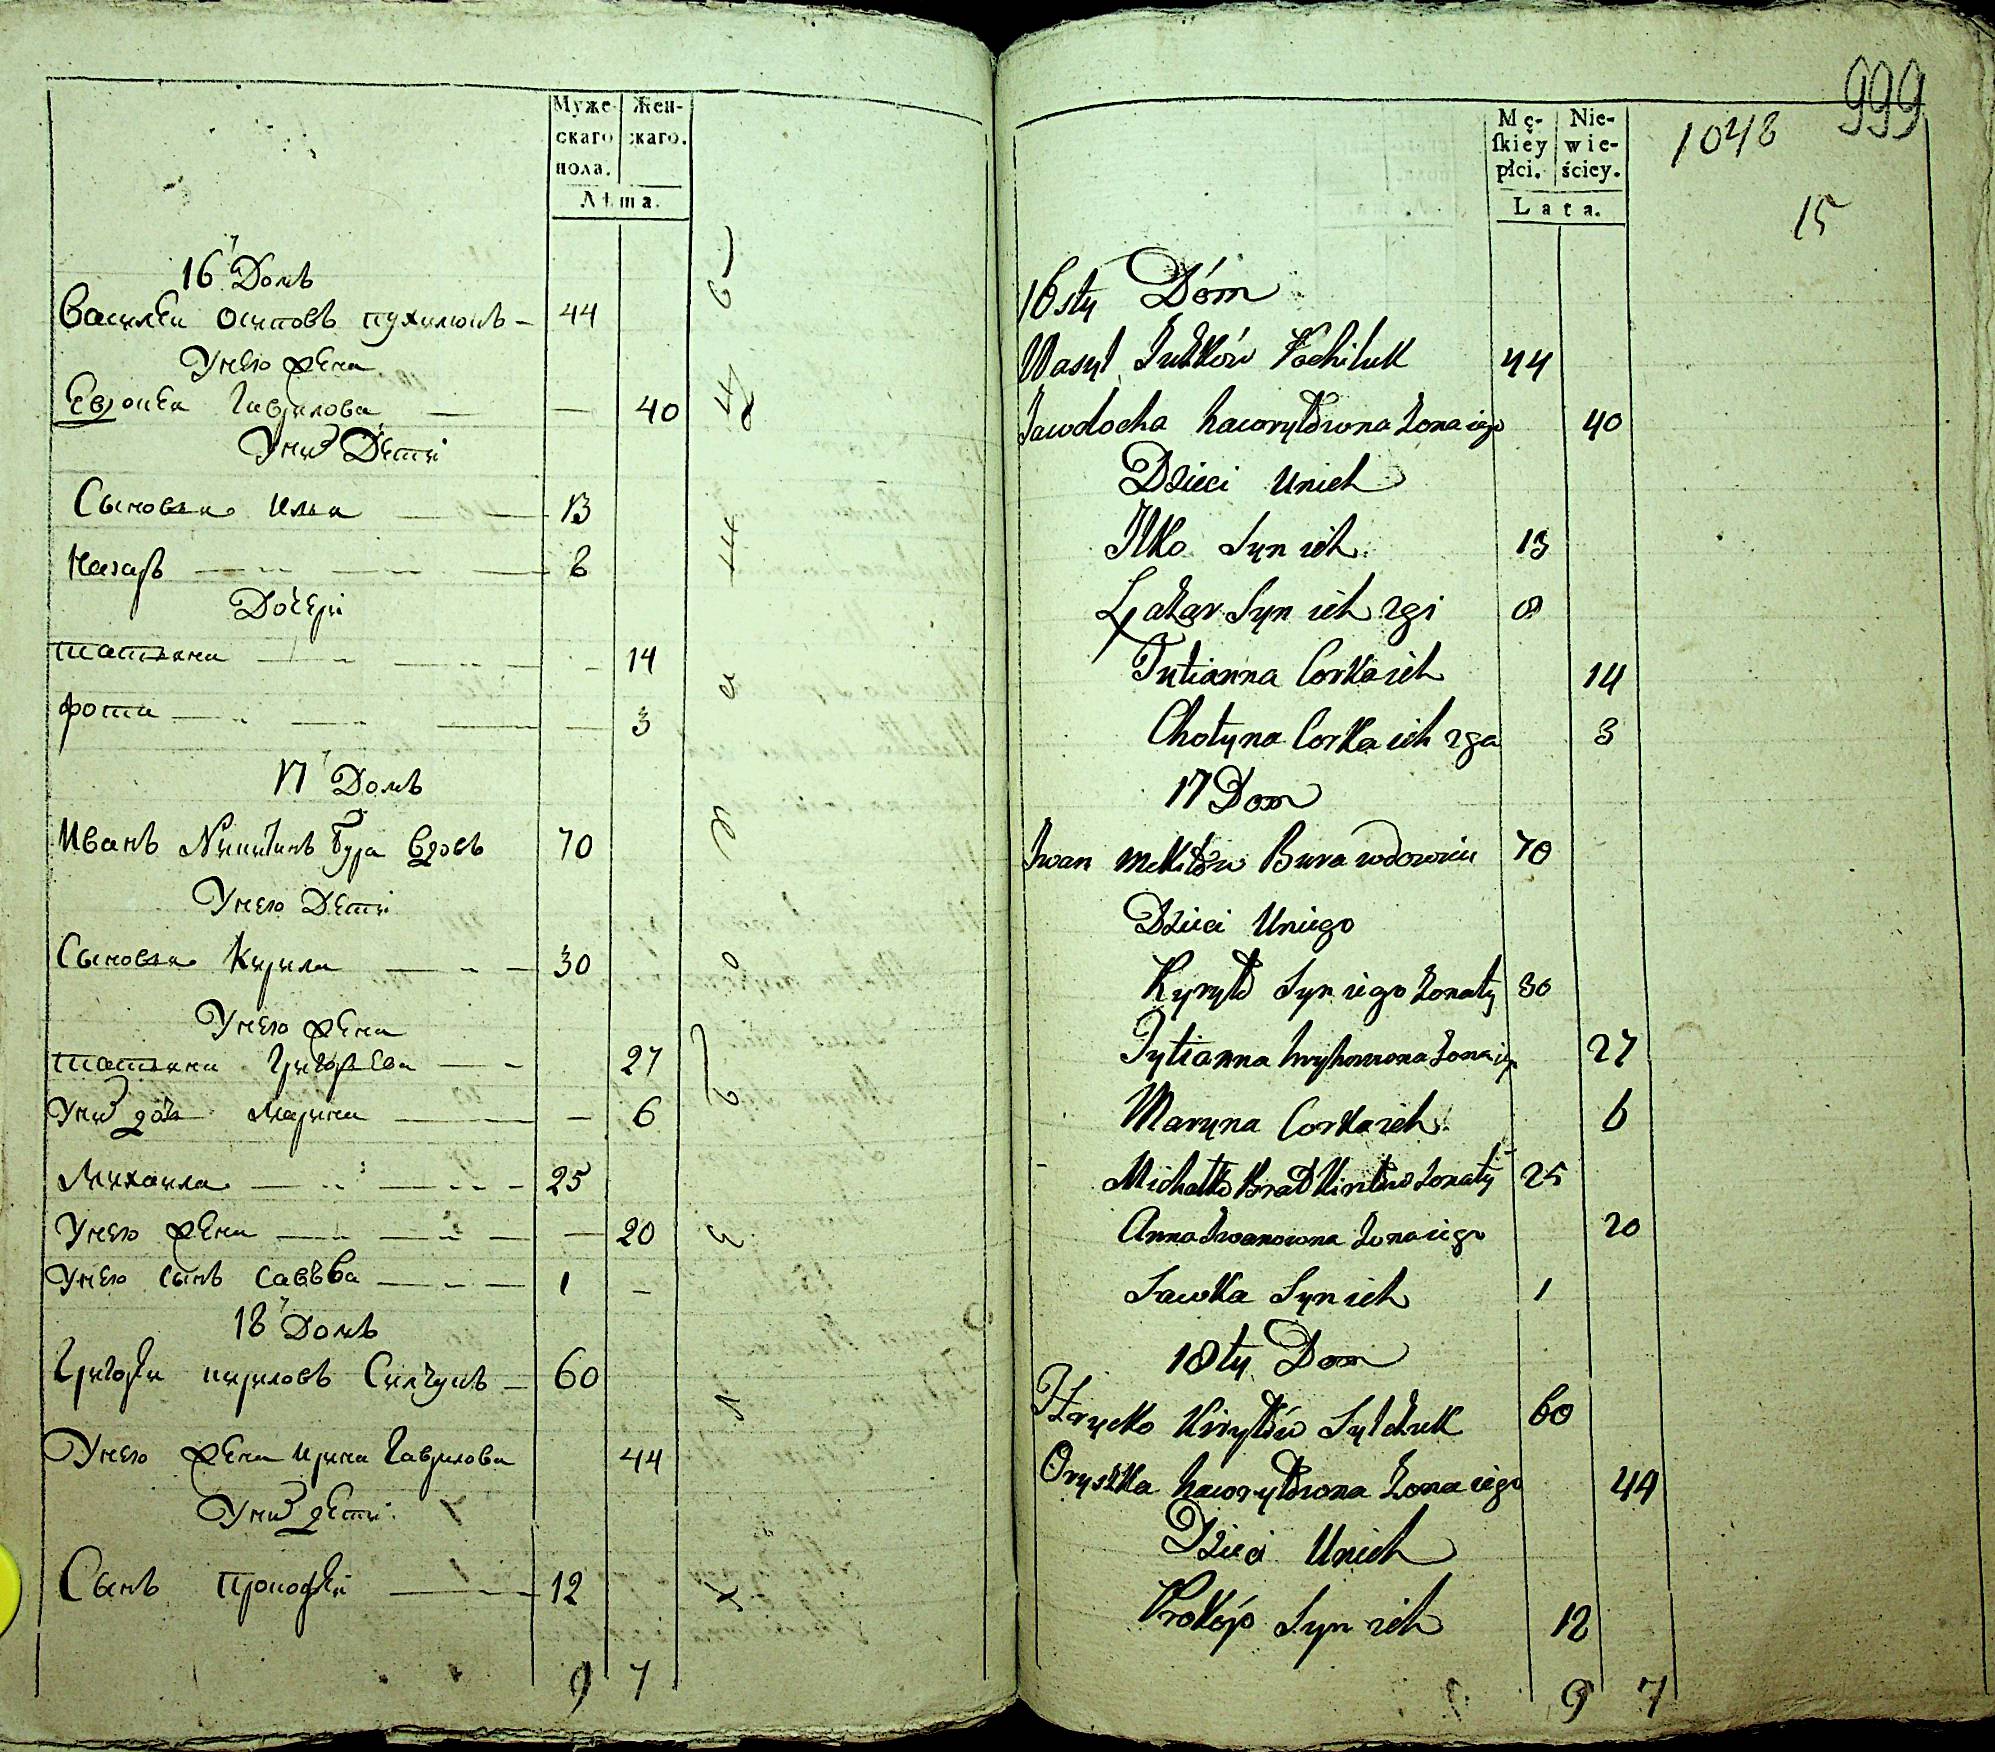 Муже-
скаго
пола.
Жен-
скаго.
Лѣта.
16 Домъ
Василеи Осиповъ пухилюкъ 44
Унего жена
Евдокея Гаврилова 40
Уних Дети
Сыновья Илья 13
Назаръ 8
Дочери
татьяна 14
фотина 3
17 Домъ
Иванъ Никитинъ Бура вдовъ 70
Унего Дети
Сыновья Кирила 30
Унего жена
татьяна Григорьева 27
Уних дочь марина 6
Михаила 25
Унего жена 20
Унего сынъ Савъва 1
18 Домъ
Григорей кириловъ Силчукъ 60
Унего жена ирина Гаврилова 44
Уних дети
Сынъ прокофей 12
9 7
999
1048
15
Mę-
ſkiey
płci.
Nie-
wie-
ściey.
Lata.
16sty Dóm
Wasyl Juśków Pochiluk 44
Jawdocha hawryłowna żona iego 40
Dzieci Unich
Ilko Syn ich 13
Łazar Syn ich 2gi 8
Tatianna Corka ich 14
Chotyna Corka ich 2ga 3
17 Dom
Iwan Mekitów Bura wdowiec 70
Dzieci Uniego
Kyryło Syn iego żonaty 30
Tytianna hryhorowna żona iego 27
Maryna Corka ich 6
Michałko Brat Kiryłow żonaty 25
Anna Iwanowna żona iego 20
Sawka Syn ich 1
18ty Dom
Hrycko Kiryłów Sylczuk 60
Oryszka hawryłowna żona iego 44
Dzieci Unich
Prokóp Syn ich 12
9 7